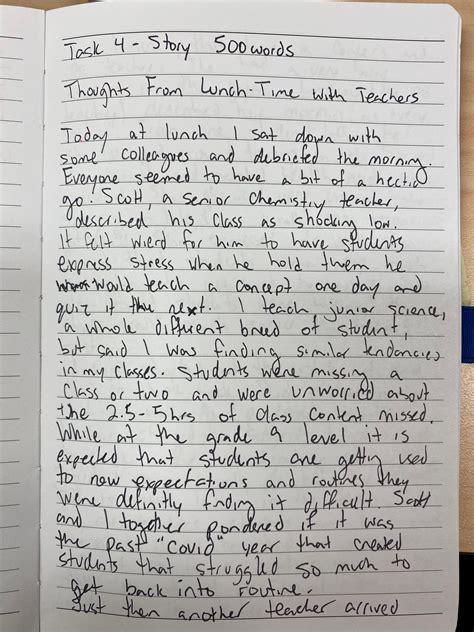 Task 4 - Story 500 words
Thoughts From Lunch-Time With Teachers
Today at lunch I sat down with
some colleagues and debriefed the morning.
Everyone seemed to have a bit of a hectic
go. Scott, a senior Chemistry teacher,
described his class as shocking low.
It felt wierd for him to have students
express stress when he hold them he
would teach a concept one day and
quiz it the next. I teach junior science,
a whole different breed of student,
but said I was finding similar tendancies
in my classes. Students were missing a
class or two and were unworried about
the 2.5-5hrs of class content missed.
While at the grade 9 level it is
expected that students are getting used
to new expectations and routines they
were definitly finding it difficult. Scott
and I together pondered if it was
the past "Covid" year that created
students that struggled so much to
get back into routine.
Just then another teacher arrived